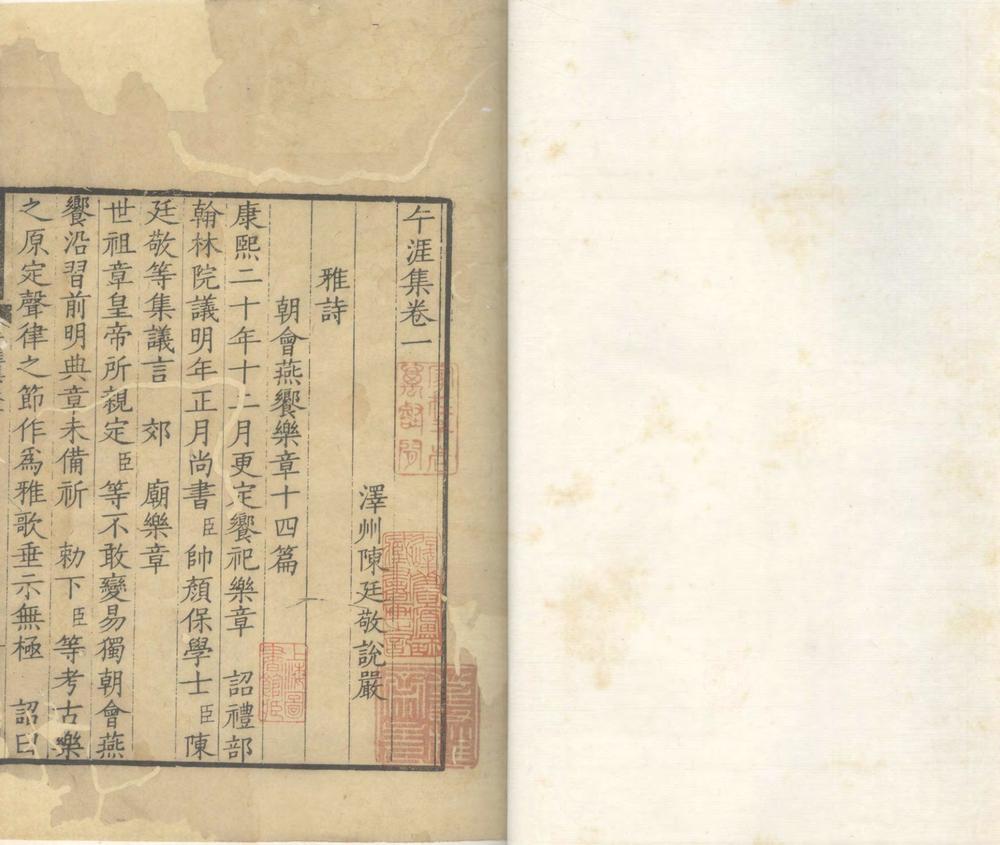 午涯集卷一
澤州陳廷敬說嚴
雅詩
朝會燕饗樂章十四篇
康熙二十年十二月更定饗祀樂章　詔禮部
翰林院議明年正月尚書臣帥顏保學士臣陳
廷敬等集議言　郊　廟樂章
世祖章皇帝所親定臣等不敢變易獨朝會燕
饗沿習前明典章未備祈　勅下臣等考古樂
之原定聲律之節作爲雅歌垂示無極　詔曰
上海圖書館藏